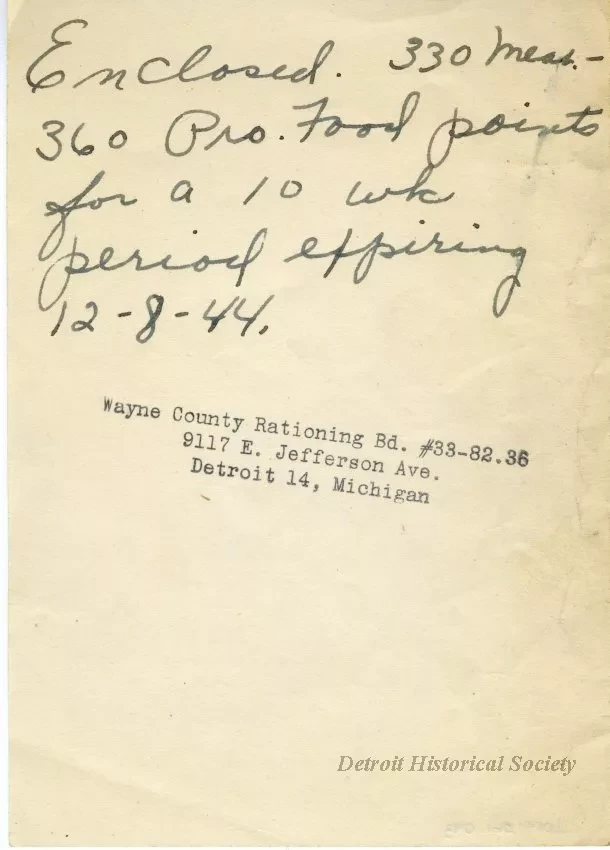 Enclosed. 330 Meat.-
360 Pro. Food points
for a 10 wk
period expiring
12-8-44.
Wayne County Rationing Bd. #33-82.36
9117 E. Jefferson Ave.
Detroit 14, Michigan
Detroit Historical Society